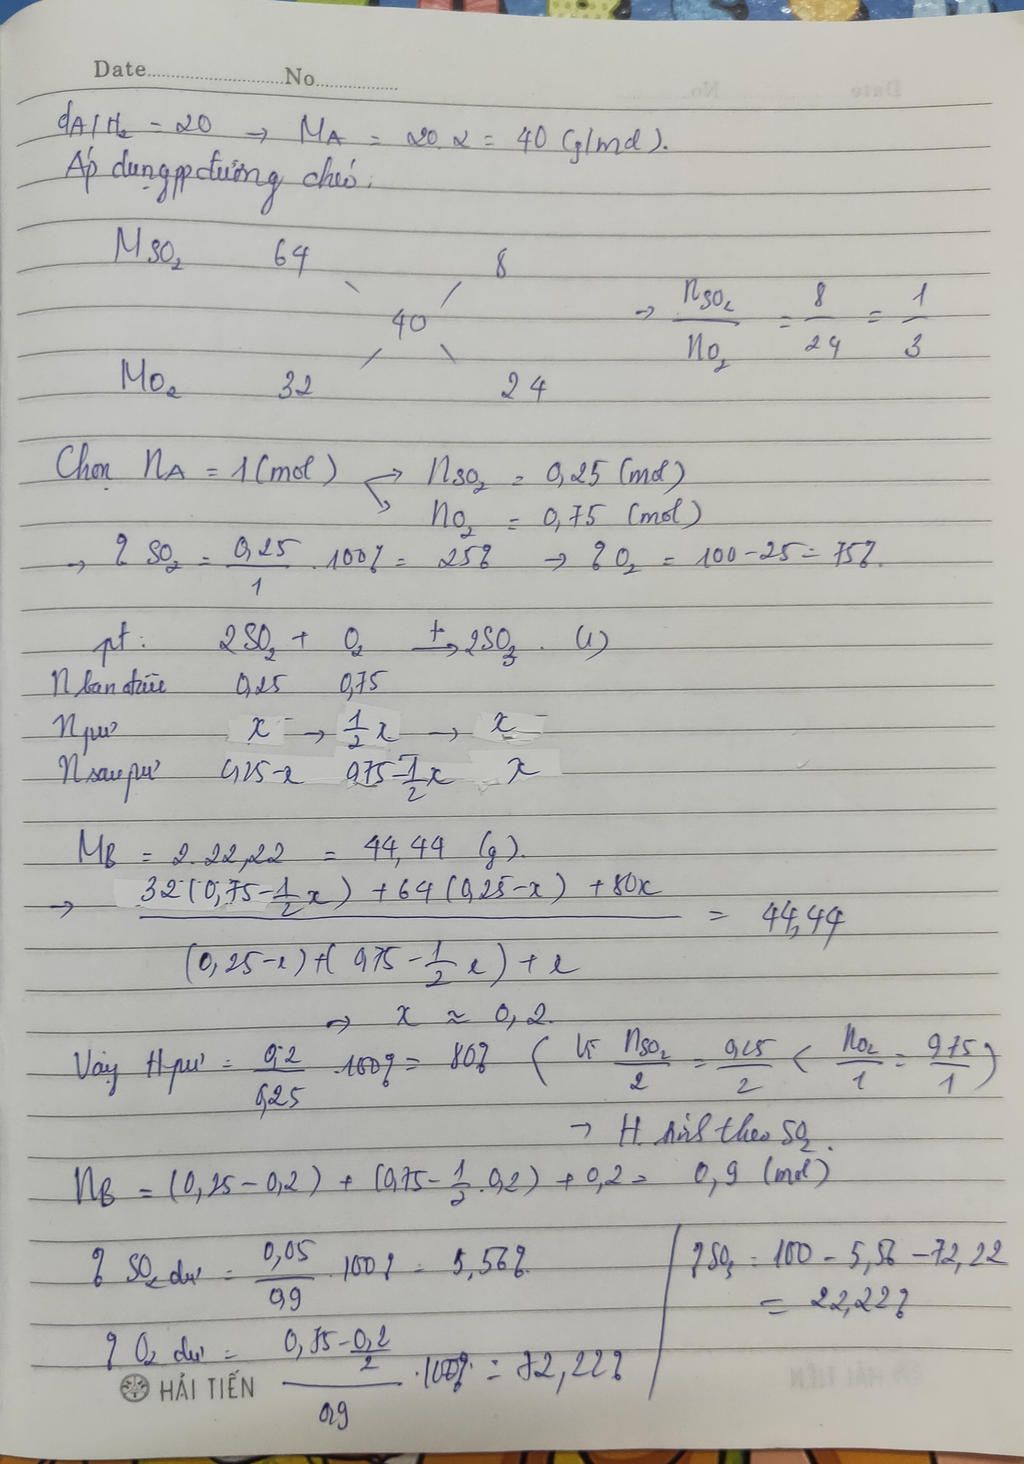 Date............No............
dA/H₂ = 20 → MA = 20.2 = 40 (g/mol).
Áp dụng pp đường chéo:
MSO₂ 64 8
40 → nSO₂/nO₂ = 8/24 = 1/3
MO₂ 32 24
Chọn nA = 1 (mol) → nSO₂ = 0,25 (mol)
nO₂ = 0,75 (mol)
→ % SO₂ = 0,25/1 . 100% = 25% → % O₂ = 100 - 25 = 75%.
pt: 2SO₂ + O₂ →(t) 2SO₃. (1)
n ban đầu 0,25 0,75
n pư x → 1/2x → x
n sau pư 0,25-x 0,75-1/2x x
MB = 2.22,22 = 44,44 (g).
→ (32(0,75-1/2x) + 64(0,25-x) + 80x)/((0,25-x)+(0,75-1/2x)+x) = 44,44
→ x ≈ 0,2.
Vậy H pư = 0,2/0,25 . 100% = 80% (Vì nSO₂/2 = 0,25/2 < nO₂/1 = 0,75/1)
→ H tính theo SO₂.
nB = (0,25-0,2) + (0,75-1/2.0,2) + 0,2 = 0,9 (mol)
% SO₂ dư = 0,05/0,9 . 100% = 5,56%.
% O₂ dư = (0,75-0,2/2)/0,9 . 100% = 72,22%
%SO₃ = 100 - 5,56 - 72,22
= 22,22%
HẢI TIẾN